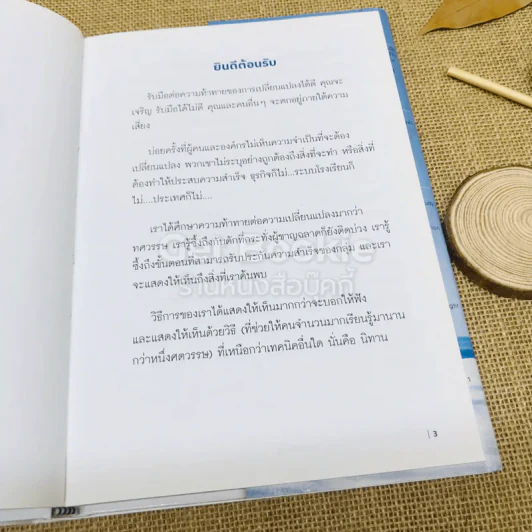 ยินดีต้อนรับ
รับมือต่อความท้าทายของการเปลี่ยนแปลงได้ดี คุณจะ
เจริญ รับมือได้ไม่ดี คุณและคนอื่นๆ จะตกอยู่ภายใต้ความ
เสี่ยง
บ่อยครั้งที่ผู้คนและองค์กรไม่เห็นความจำเป็นที่จะต้อง
เปลี่ยนแปลง พวกเขาไม่ระบุอย่างถูกต้องถึงสิ่งที่จะทำ หรือสิ่งที่
ต้องทำให้ประสบความสำเร็จ ธุรกิจก็ไม่...ระบบโรงเรียนก็
ไม่....ประเทศก็ไม่....
เราได้ศึกษาความท้าทายต่อความเปลี่ยนแปลงมากว่า
ทศวรรษ เรารู้ซึ้งถึงกับดักที่กระทั่งผู้ชาญฉลาดก็ยังติดบ่วง เรารู้
ซึ้งถึงขั้นตอนที่สามารถรับประกันความสำเร็จของกลุ่ม และเรา
จะแสดงให้เห็นถึงสิ่งที่เราค้นพบ
ร้านหนังสือบุ๊คกี้
วิธีการของเราได้แสดงให้เห็นมากกว่าจะบอกให้ฟัง
และแสดงให้เห็นด้วยวิธี (ที่ช่วยให้คนจำนวนมากเรียนรู้มานาน
กว่าหนึ่งศตวรรษ) ที่เหนือกว่าเทคนิคอื่นใด นั่นคือ นิทาน
| 3